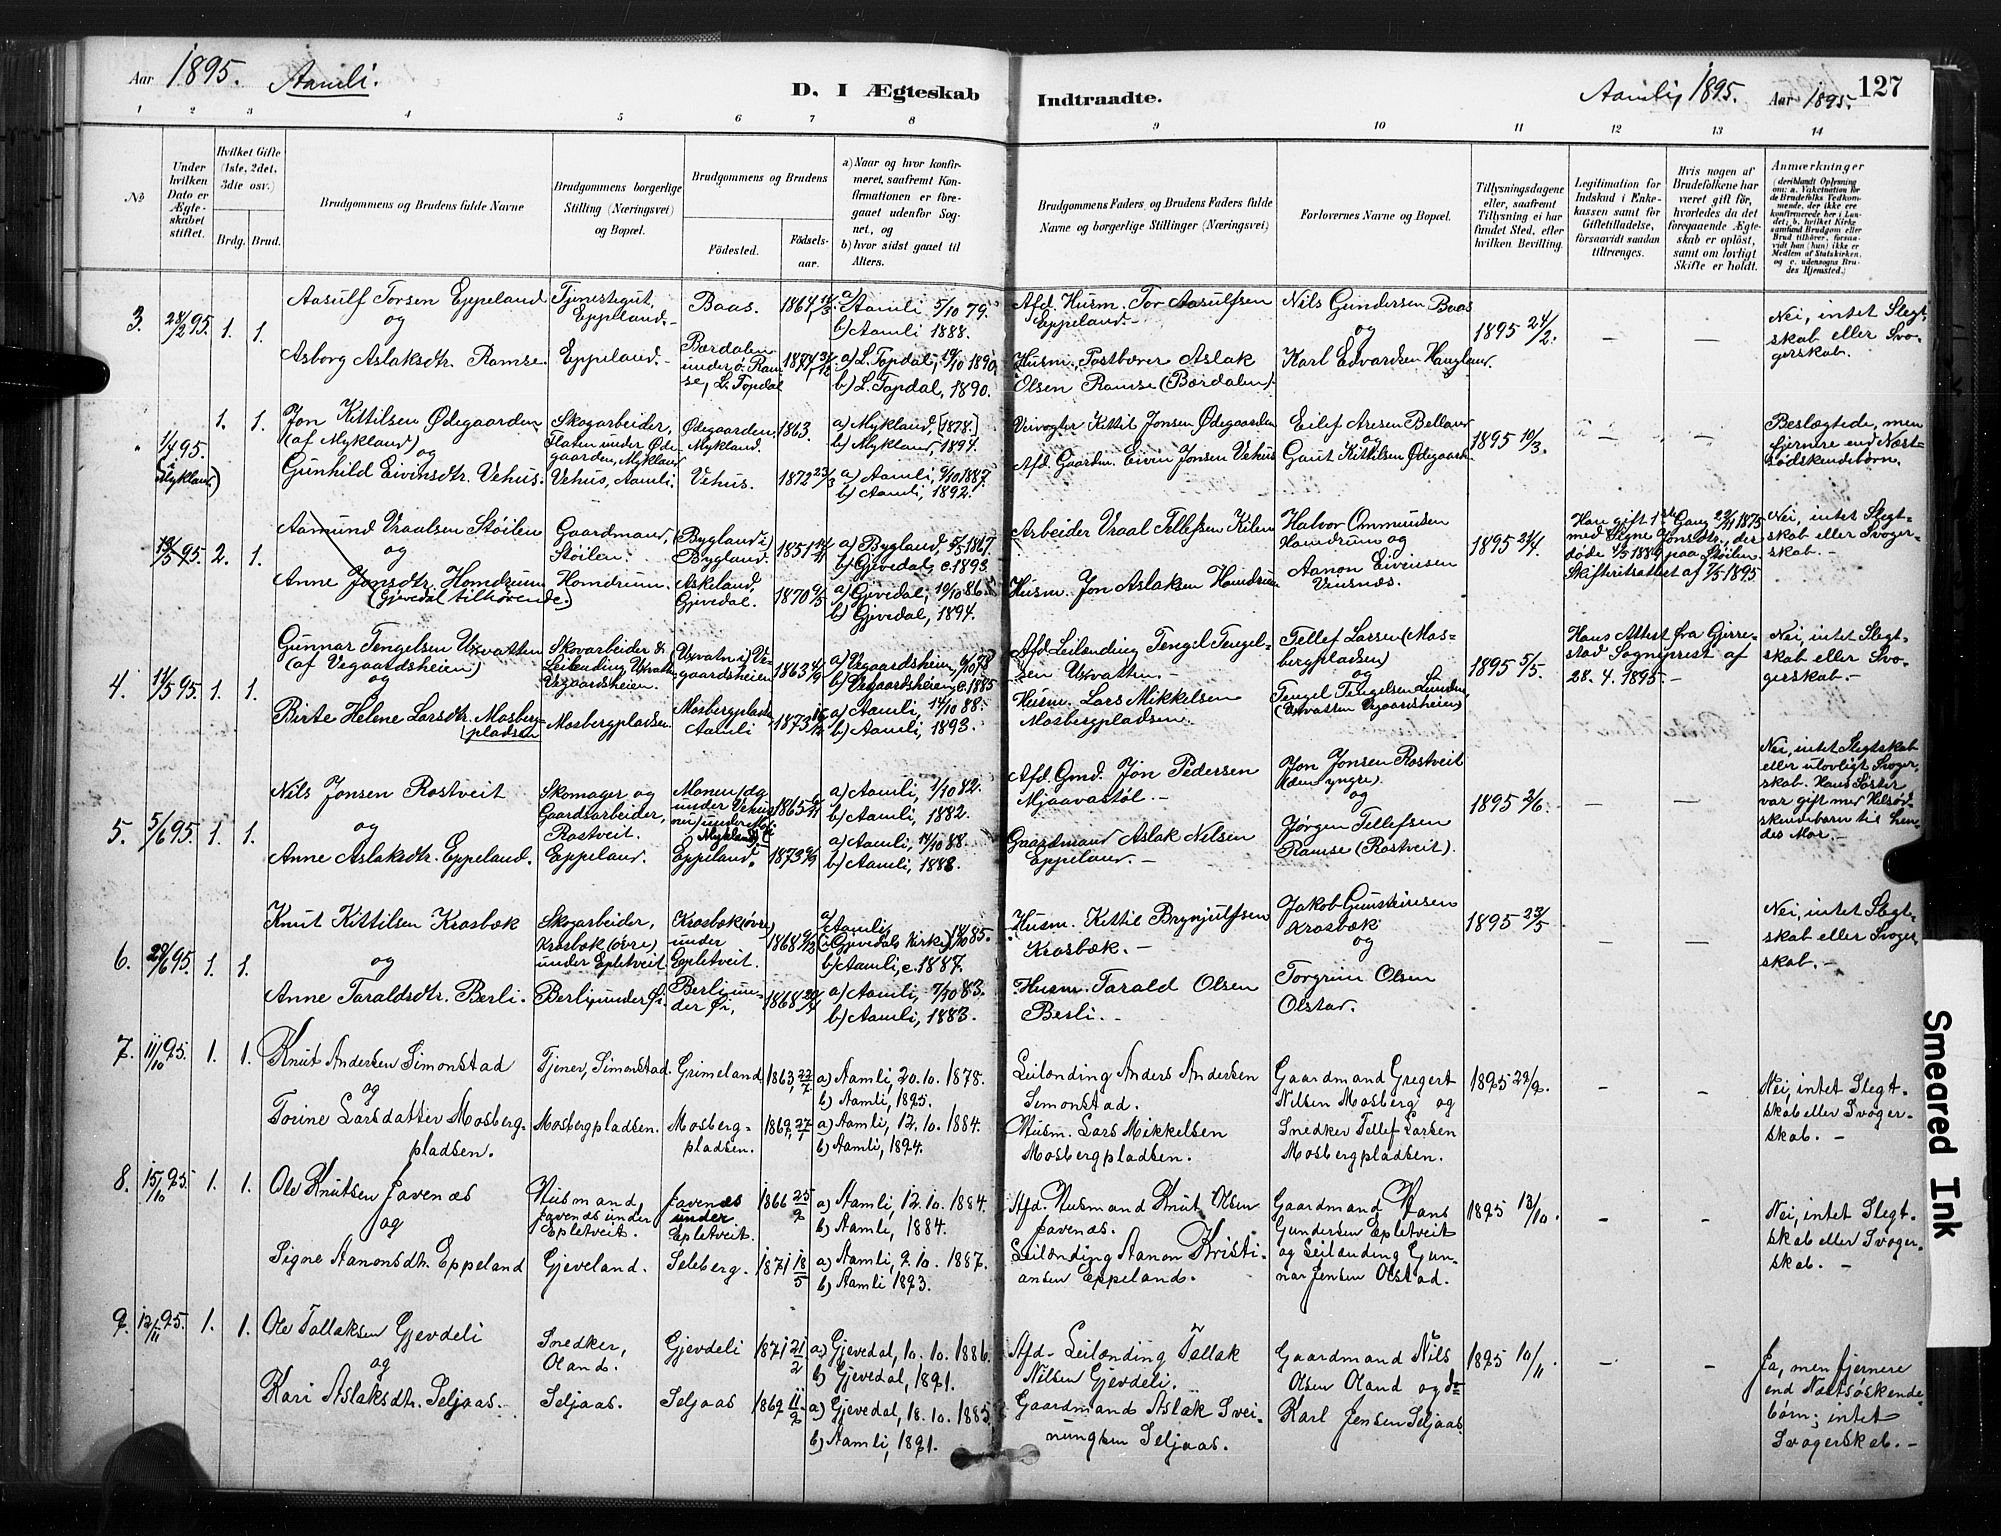 Aar 1895. Aamli.
D. I Ægteskab Indtraadte.
Aamli, 1895. Aar 1895. 127
1 2 3 4 5 6 7 8 9 10 11 12 13 14
No
Under hvilken Dato er Ægteskabet stiftet.
Hvilket Gifte (1ste, 2det, 3die osv.)
Brdg. Brud.
Brudgommens og Brudens fulde Navne
Brudgommens borgerlige Stilling (Næringsvei) og Bopæl.
Brudgommens og Brudens
Fødested. Fødselsaar.
a) Naar og hvor konfirmeret, saafremt Konfirmationen er foregaaet udenfor Sognet, og
b) hvor sidst gaaet til Alters.
Brudgommens Faders, og Brudens Faders fulde Navne og borgerlige Stillinger (Næringsvei)
Forlovernes Navne og Bopæl.
Tillysningsdagene eller, saafremt Tillysning ei har fundet Sted, efter hvilken Bevilling.
Legitimation for Indskud i Enkekassen samt for Giftetilladelse, forsaavidt saadan tiltrænges.
Hvis nogen af Brudefolkene har været gift før, hvorledes da det foregaaende Ægteskab er opløst, samt om lovligt Skifte er holdt.
Anmærkninger
3. 28/2 95. 1. 1.
Aasulf Torsen Eppeland
og
Asborg Aslaksdtr. Ramse
Tjenestegut, Eppeland.
Eppeland.
Baas. 1864
Bærdalen under ö. Ramse, L. Topdal
a) Aamli 5/10 79.
b) Aamli 1888.
a) L. Topdal, 1890
b) L. Topdal, 1890.
Afd. Husm. Tor Aasulfsen Eppeland.
Husm. Postbærer Aslak Olsen Ramse (Bærdalen).
Nils Gundersen Baas
og
Karl Edvardsen Haugland.
1895 24/2.
Nei, intet Slegtskab eller Svogerskab.
1/4 95. i Mykland) 1. 1.
Jon Kittilsen Ødegaarden
(af Mykland) og
Gunhild Eivindsdtr. Vehus.
Skogarbeider, Flaten under Ødegaarden, Mykland
Vehus, Aamli.
Ødegaarden, Mykland. 1863.
Vehus. 1872 23/3
a) Mykland, [1878.]
b) Mykland, 1894.
a) Aamli, 1887.
b) Aamli, 1892.
Veivogter Kittil Jonsen Ødegaarden
Afd. Gaardm. Eivin Jonsen Vehus
Eilef Aresen Belland
og
Gaut Kittilsen Ødegaard
1895 10/3.
Beslegtede, men fjernere end Næstsødskendebørn.
95. 2. 1.
Aamund Vraalsen Støilen
og
Anne Jonsdtr. Homdrum
(Gjevedal tilhørende.)
Gaardmand, Støilen.
Homdrum.
(Bygland i) Bygland. 1851
Askeland, Gjevedal. 1870
a) Bygland, 1867.
b) Gjevedal, c. 1893.
a) Gjevedal, 86.
b) Gjevedal, 1894.
Arbeider Vraal Tellefsen Kilen
Husm. Jon Aslaksen Homdrum
Halvor Ommundsen Homdrum og
Aanon Eivensen Vensnæs.
1895 21/4.
Han gift 1ste Gang 1875 med Signe Jonsdtr., der døde 1889 paa Støilen. Skifteretsattest af 7/5 1895
Nei, intet Slegtskab eller Svogerskab.
4. 11/5 95. 1. 1.
Gunnar Tengelsen Uxvatten
(af Vegaardsheien)
og
Birte Helene Larsdtr. Mosbergpladsen
Skovarbeider & Leilending Uxvatten Vegaardsheien.
Mosbergpladsen.
Uxvatn i) Vegaardsheien 1863
Mosbergpladsen Aamli 1873
a) Vegaardsheien, 78
b) Vegaardsheien c. 1885
a) Aamli, 88.
b) Aamli, 1893.
Afd. Leilending Tengel Tengelsen Uxvatten.
Husm. Lars Mikkelsen Mosbergpladsen.
Tellef Larsen (Mosbergpladsen)
og
Tengel Tengelsen Lunden
(Uxvatten Vegaardsheien)
1895 5/5.
Hans Attest fra Gjerrestad Sogneprest af 28. 4. 1895.
Nei, intet Slegtskab eller Svogerskab.
5. 5/6 95. 1. 1.
Nils Jonsen Rostveit
og
Anne Aslaksdtr. Eppeland.
Skomager og Gaardsarbeider, Rostveit.
Eppeland.
under Vehus 1865
Eppeland. 1873
a) Aamli, 1/10 82.
b) Aamli, 1882.
a) Aamli, 88.
b) Aamli, 1888.
Afd. Gmd. Jon Pedersen Mjaavastöl.
Gaardmand Aslak Nilsen Eppeland.
Jon Jonsen Rostveit
(den yngre).
og
Jørgen Tellefsen Ramse (Rostveit).
1895 2/6.
Nei, intet Slegtskab eller ulovligt Svogerskab. Hans Søster var gift med Helsødskendebarn til hendes Mor.
6. 29/6 95. 1. 1.
Knut Kittilsen Krosbæk
og
Anne Taraldsdtr. Berli.
Skogarbeider, Krosbæk (övre) under Epletveit
Berli under Øi.
Krosbæk (övre) under Epletveit. 1868
Berli under Øi, 1868
a) Aamli (i Gjevedals Kirke) 85.
b) Aamli, c. 1887.
a) Aamli, 7/10 83.
b) Aamli, 1883.
Husm. Kittil Brynjulfsen Krosbæk.
Husm. Tarald Olsen Berli.
Jakob Gunsteinsen Krosbæk
og
Torgrim Olsen Olstad.
1895 23/5
Nei, intet Slegtskab eller Svogerskab.
7. 11/10 95. 1. 1.
Knut Andersen Simonstad
og
Torine Larsdatter Mosbergpladsen.
Tjener, Simonstad.
Mosbergpladsen.
Grimeland 1863, 22/7
Mosbergpladsen. 1869, 27/1
a) Aamli, 20. 10. 1878.
b) Aamli, 1895.
a) Aamli, 12. 10. 1884.
b) Aamli, 1894.
Leilænding Anders Andersen Simonstad.
Husm. Lars Mikkelsen Mosbergpladsen.
Gaardmand Gregert Nilsen Mosberg og
Snedker Tellef Larsen Mosbergpladsen.
1895 29/9.
Nei, intet Slegtskab eller Svogerskab.
8. 15/10 95. 1. 1.
Ole Knutsen Favenæs
og
Signe Aanonsdtr. Eppeland
Husmand, Favenæs under Epletveit.
Gjeveland.
Favenæs under Epletveit. 1866 25/9
Seleberg. 1871 18/5
a) Aamli, 12. 10. 1884.
b) Aamli, 1884.
a) Aamli, 9. 10. 1887.
b) Aamli 1893.
Afd. Husmand Knut Olsen Favenæs.
Leilænding Aanon Kristiansen Eppeland.
Gaardmand Hans Gundersen Epletveit
og Leilænding Gunnar Jensen Olstad.
1895 13/10.
Nei, intet Slegtskab eller Svogerskab.
9. 12/11 95. 1. 1.
Ole Tallaksen Gjevdeli
og
Kari Aslaksdtr. Seljaas.
Snedker, Oland.
Seljaas.
Gjevdeli 1871 21/2
Seljaas 1869 11/9
a) Gjevedal, 10. 10. 1886.
b) Gjevedal, 1891.
a) Gjevedal, 18. 10. 1885.
b) Aamli, 1891.
Afd. Leilænding Tallak Nilsen Gjevdeli.
Gaardmand Aslak Sveinungsen Seljaas.
Gaardmand Nils Olsen Oland og do
Karl Jensen Seljaas.
1895 10/11.
Ja, men fjernere end Næstsøskendebørn; intet Svogerskab.
Smeared Ink